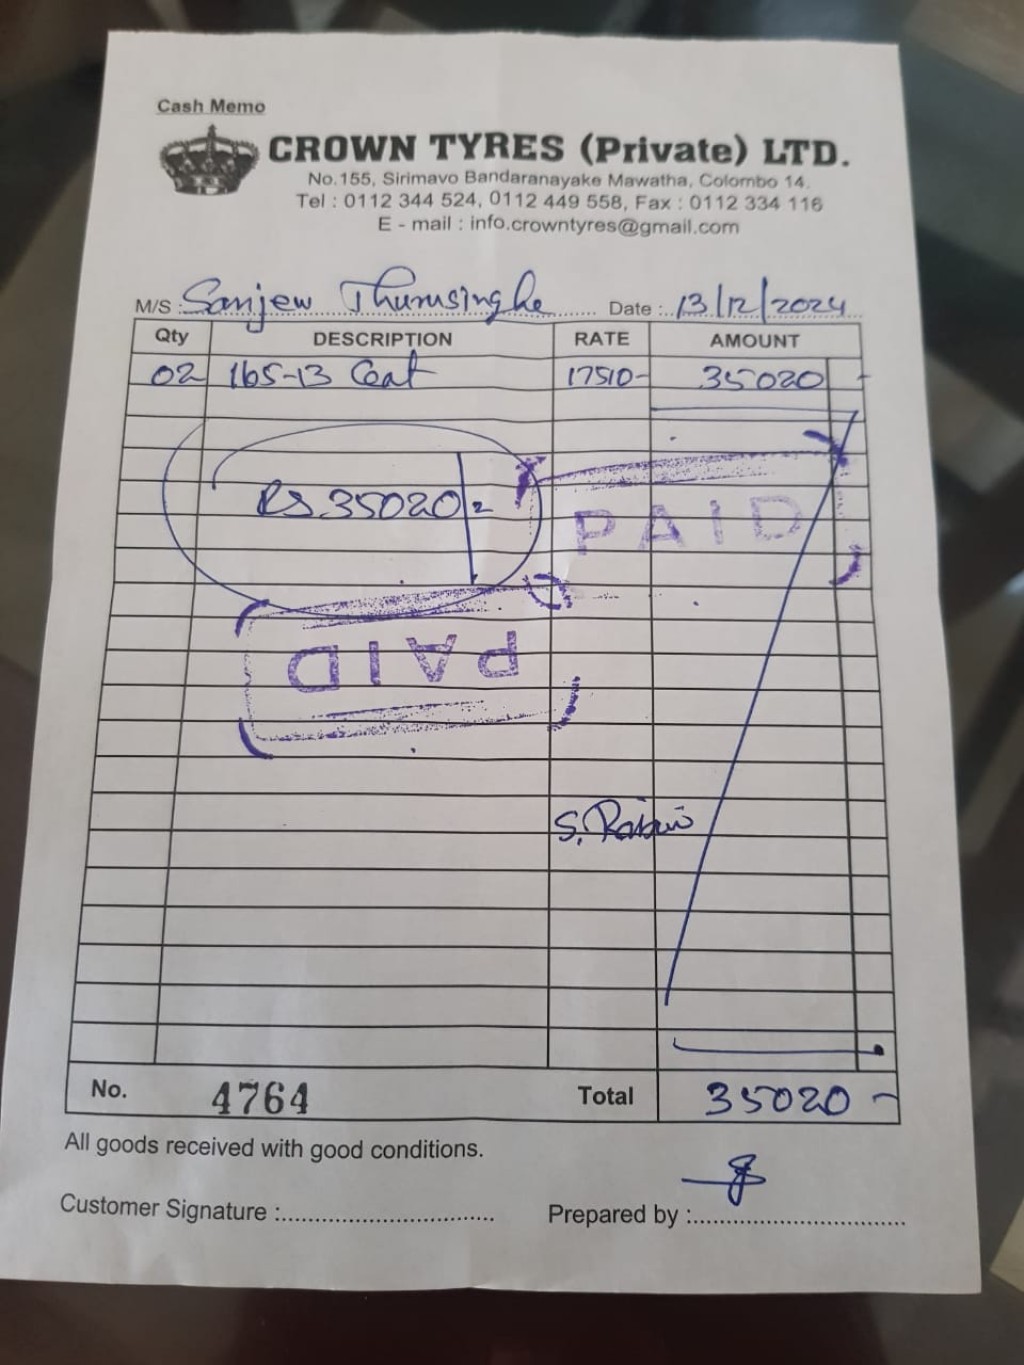 Cash Memo
CROWN TYRES (Private) LTD.
No.155, Sirimavo Bandaranayake Mawatha, Colombo 14.
Tel : 0112 344 524, 0112 449 558, Fax : 0112 334 116
E - mail : info.crowntyres@gmail.com
M/S : Sanjew Thurusinghe Date : 13/12/2024
Qty DESCRIPTION RATE AMOUNT
02 165-13 Ceat 17510- 35020 -
Rs.35020/=
PAID
PAID
S.
No. 4764 Total 35020 -
All goods received with good conditions.
Customer Signature : Prepared by :